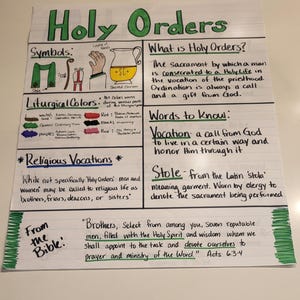 Holy Orders
Symbols:
What is Holy Orders?
The sacrament by which a man
is consecrated to a Holy Life in
the vocation of the priesthood.
Ordination is always a call
and a gift from God.
Liturgical Colors:
Words to Know:
Vocation: a call from God
to live in a certain way and
honor Him through it
* Religious Vocations *
While not specifically "Holy Orders" men and
women may be called to religious life as
brothers, friars, deacons, or sisters
Stole: from the Latin 'stola'
meaning garment. Worn by clergy to
denote the sacrament being performed
From the Bible:
"Brothers, select from among you, seven reputable
men, filled with the Holy Spirit and wisdom whom we
shall appoint to the task and devote ourselves to
prayer and ministry of the Word." Acts 6:3-4